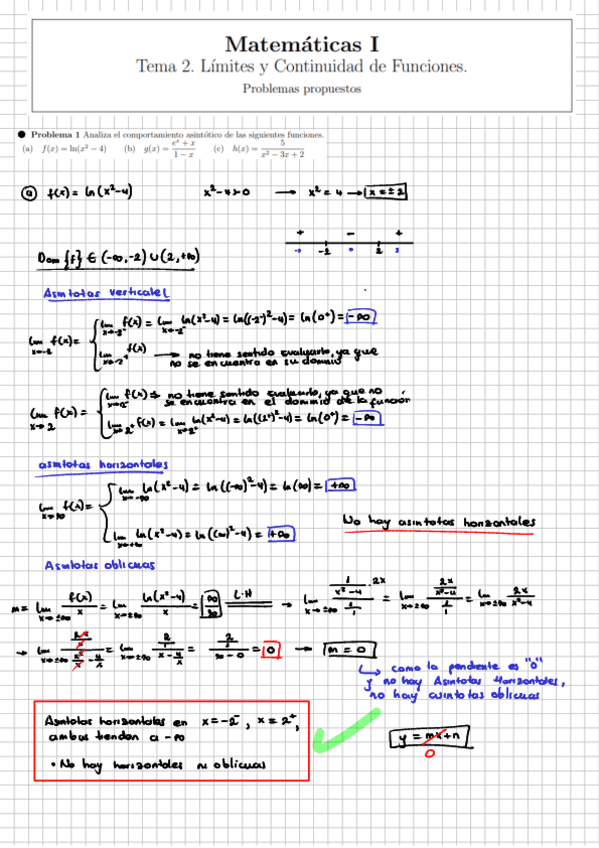 Matemáticas I
Tema 2. Límites y Continuidad de Funciones.
Problemas propuestos
● Problema 1 Analiza el comportamiento asintótico de las siguientes funciones.
(a) f(x) = ln(x² − 4) (b) g(x) = (eˣ + x)/(1 − x) (c) h(x) = 5/(x² − 3x + 2)
ⓐ f(x) = ln(x²-4) x²-4>0 → x² = 4 → x = ±2
+ − +
-2 0 2 3
Dom {f} ∈ (-∞,-2) ∪ (2,+∞)
Asintotas verticales
lim x→-2 f(x) = { lim x→-2⁻ f(x) = lim x→-2⁻ ln(x²-4) = ln((-2⁻)²-4) = ln(0⁺) = -∞
lim x→-2⁺ f(x) → no tiene sentido evaluarlo, ya que
no se encuentra en su dominio
lim x→2 f(x) = { lim x→2⁻ f(x) ⇒ no tiene sentido evaluarlo, ya que no
se encuentra en el dominio de la función
lim x→2⁺ f(x) = lim x→2⁺ ln(x²-4) = ln((2⁺)²-4) = ln(0⁺) = -∞
asintotas horizontales
lim x→±∞ f(x) = { lim x→-∞ ln(x²-4) = ln((-∞)²-4) = ln(∞) = +∞
lim x→+∞ ln(x²-4) = ln((∞)²-4) = +∞
No hay asintotas horizontales
Asintotas oblicuas
m = lim x→±∞ f(x)/x = lim x→±∞ ln(x²-4)/x = ∞/∞ L'H → lim x→±∞ (1/(x²-4) · 2x)/(1/1) = lim x→±∞ (2x/(x²-4))/(1/1) = lim x→±∞ 2x/(x²-4)
→ lim x→±∞ (2x/x)/(x²/x - 4/x) = lim x→±∞ (2/1)/(x - 4/x) = (2/1)/(∞ - 0) = 0 → m = 0
como la pendiente es "0"
y no hay Asintotas Horizontales,
no hay asintotas oblicuas
Asintotas horizontales en x=-2⁻, x = 2⁺,
ambas tienden a -∞
• No hay horizontales ni oblicuas
y = mx+n
0